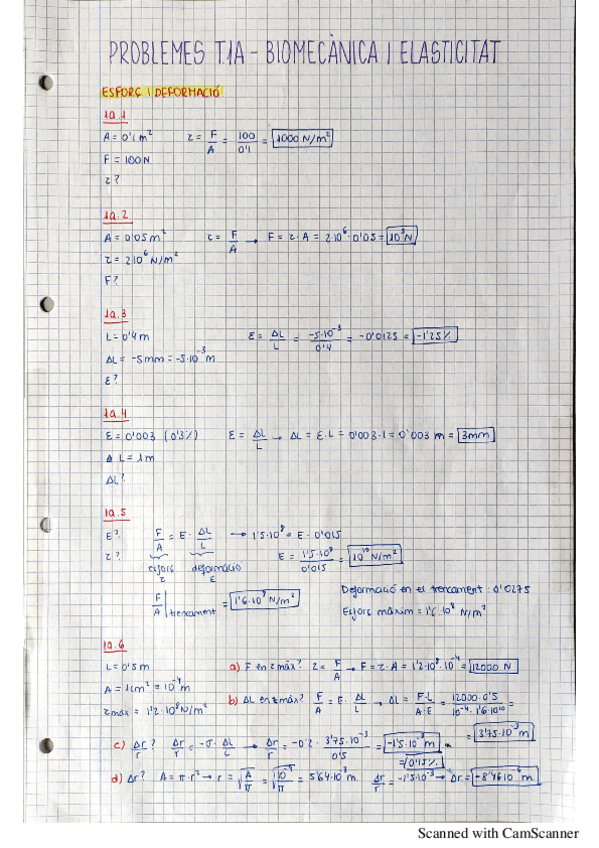 PROBLEMES T.1A - BIOMECÀNICA I ELASTICITAT
ESFORÇ I DEFORMACIÓ
1a.1
A = 0'1 m² τ = F/A = 100/0'1 = 1000 N/m²
F = 100 N
τ?
1a.2
A = 0'05 m² τ = F/A → F = τ · A = 2·10⁶ · 0'05 = 10⁵ N
τ = 2·10⁶ N/m²
F?
1a.3
L = 0'4 m ε = ΔL/L = -5·10⁻³/0'4 = -0'0125 = -1'25%
ΔL = -5mm = -5·10⁻³ m
ε?
1a.4
ε = 0'003 (0'3%) ε = ΔL/L → ΔL = ε·L = 0'003·1 = 0'003 m = 3mm
L = 1m
ΔL?
1a.5
E? F/A = E · ΔL/L → 1'5·10⁸ = E · 0'015
τ? esforç τ deformació ε E = 1'5·10⁸/0'015 = 10¹⁰ N/m²
F/A| trencament = 1'6·10⁸ N/m² Deformació en el trencament: 0'0275
Esforç màxim = 1'6·10⁸ N/m²
1a.6
L = 0'5 m a) F en τ màx? τ = F/A → F = τ · A = 1'2·10⁸ · 10⁻⁴ = 12000 N
A = 1cm² = 10⁻⁴ m
τ màx = 1'2·10⁸ N/m² b) ΔL en τ màx? F/A = E · ΔL/L → ΔL = F·L/A·E = 12000·0'5/10⁻⁴·1'6·10¹⁰ =
= 3'75·10⁻³ m
c) Δr/r? Δr/r = -σ · ΔL/L → Δr/r = -0'2 · 3'75·10⁻³/0'5 = -1'5·10⁻³ m
= 0'15%
d) Δr? A = π·r² → r = √A/π = √10⁻⁴/π = 5'64·10⁻³ m Δr/r = -1'5·10⁻³ → Δr = -8'46·10⁻⁶ m
Scanned with CamScanner